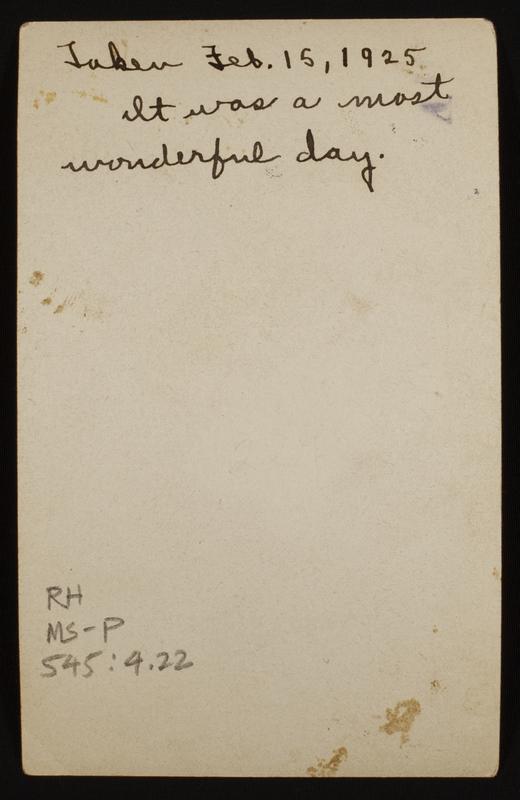 Taken Feb. 15, 1925
It was a most
wonderful day.
RH
MS-P
545:4.22